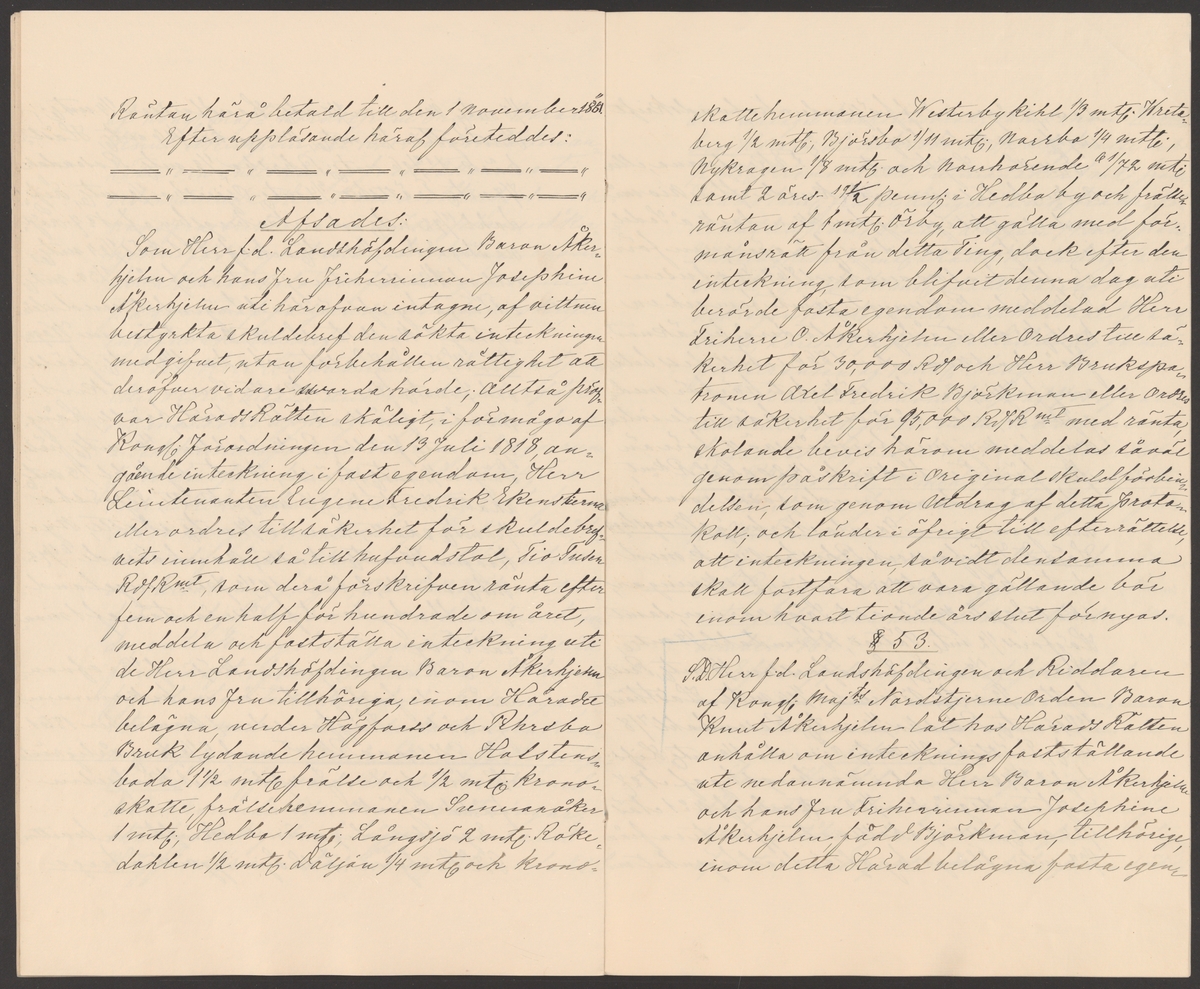 Räntan härå betald till den 1 November 1861
Efter uppläsande häraf företeddes:
Afsades:
Som Herr f.d. Landshöfdingen Baron Åker-
hjelm och hans Fru Friherrinnan Josephine
Åkerhjelm uti härofvan intagne, af vittnen
bestyrkta skuldebref den sökta inteckningen
medgifvet, utan förbehållen rättighet att
deröfver vidare warda hörde; Alltså pröf-
var HäradsRätten skäligt, i förmågo af
Kongl. Förordningen den 13 Juli 1818, an-
gående inteckning i fast egendom, Herr
Lieutenanten Eugene Fredrik Ekenstierna
eller ordres till säkerhet för skuldebref-
vets innehåll så till hufvudstol, Tio Tusen
Rd Rmt, som derå förskrifven ränta efter
fem och en half för hundrade om året,
meddela och fastställa inteckning uti
de Herr Landshöfdingen Baron Åkerhjelm
och hans Fru tillhöriga, inom Häradet
belägna, under Högfors och Rhrsbo
Bruk lydande hemmanen Halstens-
boda 1 1/2 mtl frälse och 1/2 mtl krono-
skatte, frälsehemmanen Svennsåker
1 mtl, Hedbo 1 mtl, Långsjö 2 mtl. Röke-
dahlen 1/2 mtl. Däljan 1/4 mtl och krono-
skattehemmanen Westerbykihl 1/3 mtl. Kreta-
berg 1/2 mtl, Björsbo 1/11 mtl, Norrbo 1/4 mtl,
Nykrogen 1/8 mtl och Norrhörende a 1/72 mtl
samt 2 öres 17 1/2 penn. i Hedbo by och frälse-
räntan af 1 mtl Örby, att gälla med för-
månsrätt från detta Ting, dock efter den
inteckning, som blifvit denna dag uti
berörde fasta egendom meddelad Herr
Friherre O. Åkerhjelm eller Ordres till sä-
kerhet för 30,000 Rd och Herr Brukspa-
tronen Axel Fredrik Björkman eller Ordres
till säkerhet för 95,000 Rd Rmt med ränta,
skolande bevis härom meddelas såväl
genom påskrift i Original skuldförbin-
delsen, som genom Utdrag af detta proto-
koll; och länder i öfrigt till efterrättelse,
att inteckningen, såvidt densamma
skall fortfara att vara gällande bör
inom hvart tionde års slut förnyas.
§ 53.
S.D. Herr f.d. Landshöfdingen och Riddaren
af Kongl. Maj:ts Nordstjerne Orden Baron
Knut Åkerhjelm lät hos HäradsRätten
anhålla om intecknings fastställande
uti nedannämnda Herr Baron Åkerhjelm
och hans Fru Friherrinnan Josephine
Åkerhjelm född Björkman, tillhörige,
inom detta Härad belägna fasta egen-